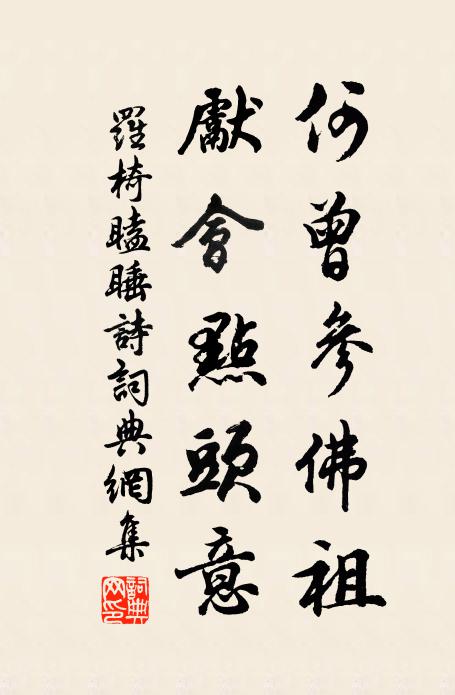 何曾參佛祖
獻會點頭意
羅椅瞌睡詩詞典網集
詞典網印